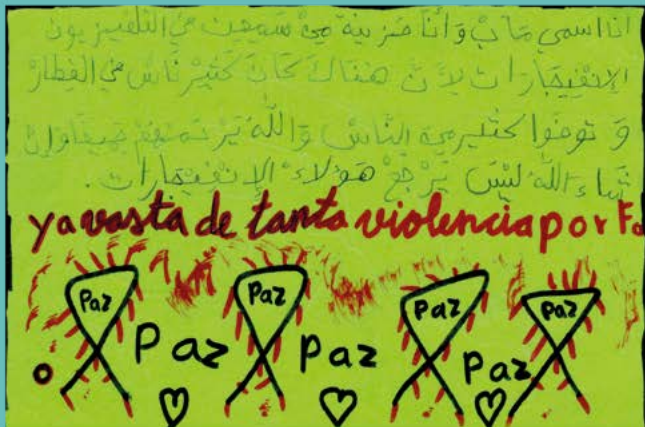 انا اسمي وَأَنا حَزِينَة سَمِعت في التلفيزيون
الإِنْفِيجَارَات لِأَنَّ هُنَاكَ كَانَ كَثِيرْ نَاسْ في القِطَارْ
وَ توفوا كثير من النَّاسْ وَاللَّه يَرْحَمهُمْ جميعًا وإِنْ
شَاءَ اللَّه لَيْسَ يَرْجَعْ هَؤلاءْ الإِنْفيجارات.
ya vasta de tanta violencia por Fa
Paz Paz Paz Paz
Paz Paz Paz